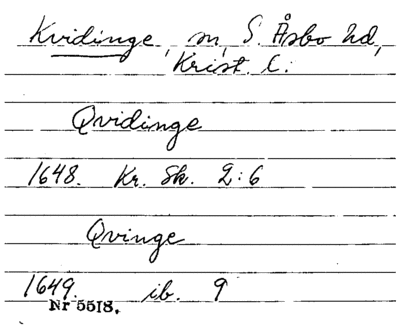 Kvidinge, sn, S. Åsbo hd,
Krist. l.
Qvidinge
1648. Kr. Sk. 2:6
Qvinge
1649. ib. 9
Nr 5518.